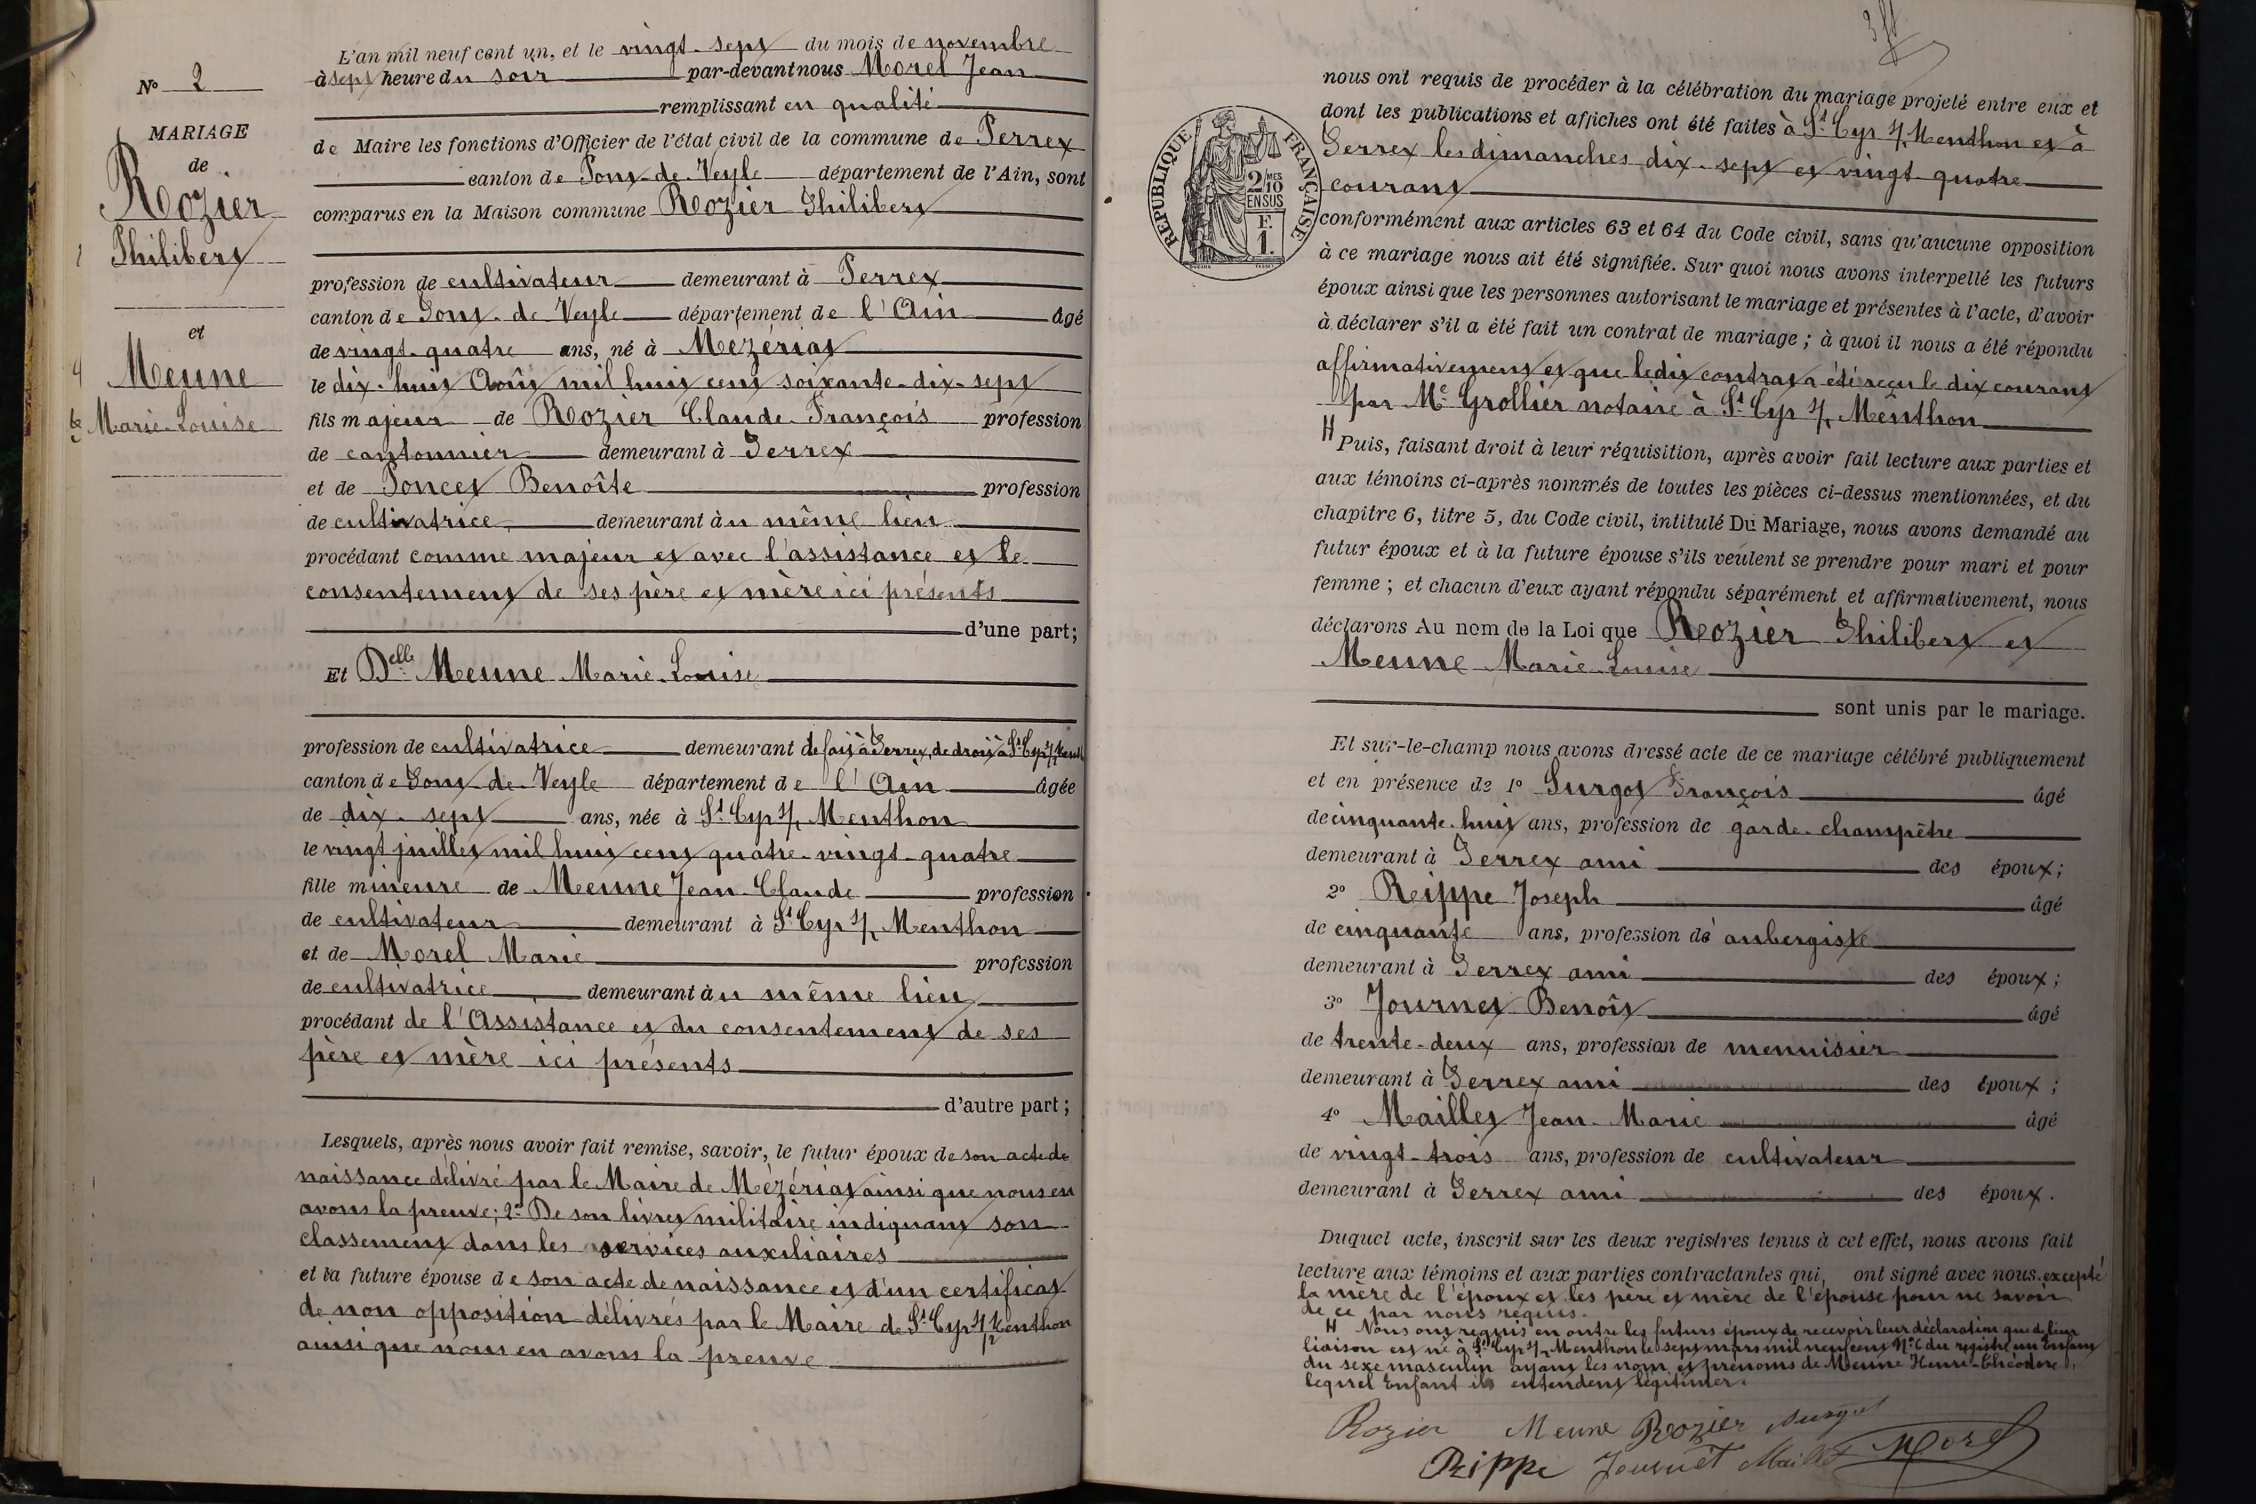 L'an mil neuf cent un, et le vingt-sept du mois de novembre
à sept heure du soir par-devant nous Morel Jean
remplissant en qualité
de Maire les fonctions d'Officier de l'état civil de la commune de Perrex
canton de Pont-de-Veyle département de l'Ain, sont
comparus en la Maison commune Rozier Philibert
profession de cultivateur demeurant à Perrex
canton de Pont-de-Veyle département de l'Ain âgé
de vingt-quatre ans, né à Mézériat
le dix-huit Août mil huit cent soixante-dix-sept
fils majeur de Rozier Claude-François profession
de cantonnier demeurant à Perrex
et de Poncet Benoîte profession
de cultivatrice demeurant au même lieu
procédant comme majeur et avec l'assistance et le
consentement de ses père et mère ici présents
d'une part;
Et Delle Meune Marie-Louise
profession de cultivatrice demeurant de fait à Perrex, de droit à St Cyr s/ Menth
canton de Pont-de-Veyle département de l'Ain âgée
de dix-sept ans, née à St Cyr s/ Menthon
le vingt juillet mil huit cent quatre-vingt-quatre
fille mineure de Meune Jean-Claude profession
de cultivateur demeurant à St Cyr s/ Menthon
et de Morel Marie profession
de cultivatrice demeurant au même lieu
procédant de l'Assistance et du consentement de ses
père et mère ici présents
d'autre part;
Lesquels, après nous avoir fait remise, savoir, le futur époux de son acte de
naissance délivré par le Maire de Mézériat ainsi que nous en
avons la preuve; 2º De son livret militaire indiquant son
classement dans les services auxiliaires
et la future épouse de son acte de naissance et d'un certificat
de non opposition délivrés par le Maire de St Cyr s/ Menthon
ainsi que nous en avons la preuve
Nº 2
MARIAGE
de
Rozier
Philibert
1
et
4
Meune
Marie-Louise
nous ont requis de procéder à la célébration du mariage projeté entre eux et
dont les publications et affiches ont été faites à St Cyr s/ Menthon et à
Perrex les dimanches dix-sept et vingt-quatre
courant
RÉPUBLIQUE FRANÇAISE
2/10 MES
EN SUS
F.
1.
conformément aux articles 63 et 64 du Code civil, sans qu'aucune opposition
à ce mariage nous ait été signifiée. Sur quoi nous avons interpellé les futurs
époux ainsi que les personnes autorisant le mariage et présentes à l'acte, d'avoir
à déclarer s'il a été fait un contrat de mariage; à quoi il nous a été répondu
affirmativement et que ledit contrat a été reçu le dix courant
par Me Grollier notaire à St Cyr s/ Menthon
H Puis, faisant droit à leur réquisition, après avoir fait lecture aux parties et
aux témoins ci-après nommés de toutes les pièces ci-dessus mentionnées, et du
chapitre 6, titre 5, du Code civil, intitulé Du Mariage, nous avons demandé au
futur époux et à la future épouse s'ils veulent se prendre pour mari et pour
femme; et chacun d'eux ayant répondu séparément et affirmativement, nous
déclarons Au nom de la Loi que Rozier Philibert et
Meune Marie-Louise
sont unis par le mariage.
Et sur-le-champ nous avons dressé acte de ce mariage célébré publiquement
et en présence de 1º Surgot François âgé
de cinquante-huit ans, profession de garde-champêtre
demeurant à Perrex ami des époux;
2º Reippe Joseph âgé
de cinquante ans, profession de aubergiste
demeurant à Perrex ami des époux;
3º Journet Benoît âgé
de trente-deux ans, profession de menuisier
demeurant à Perrex ami des époux;
4º Maillet Jean-Marie âgé
de vingt-trois ans, profession de cultivateur
demeurant à Perrex ami des époux.
Duquel acte, inscrit sur les deux registres tenus à cet effet, nous avons fait
lecture aux témoins et aux parties contractantes qui, ont signé avec nous. excepté
la mère de l'époux et les père et mère de l'épouse pour ne savoir
de ce par nous requis.
H Nous ont requis en outre les futurs époux de recevoir leur déclaration que de leur
liaison est né à St Cyr s/ Menthon le sept mars mil neuf cent Nº 6 du registre un Enfant
du sexe masculin ayant les nom et prénoms de Meune Henri-Théodore,
lequel Enfant ils entendent légitimer.
Rozier Meune Rozier Surgot
Rippe Journet Maillet Morel